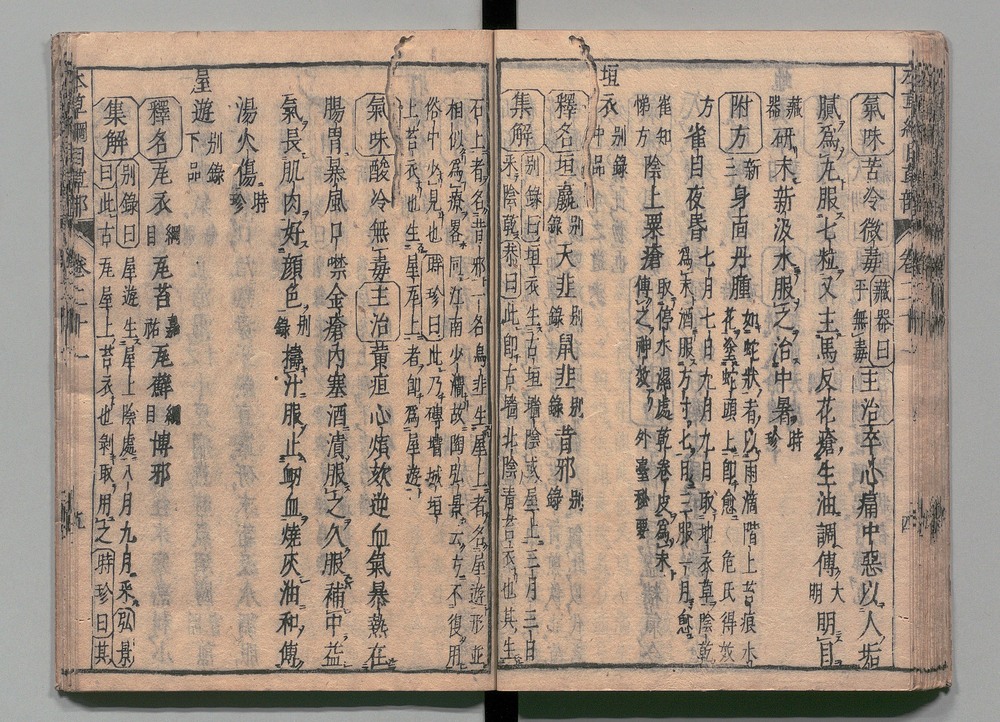 氣味苦冷微毒藏器曰平無毒主治卒心痛中惡以人垢
膩為丸服七粒又主馬反花瘡生油調傅大明明目
藏器研末新汲水服之治中暑時珍
附方新三身面丹腫如蛇狀者以雨滴階上苔痕水花塗蛇頭上即愈危氏得效
方雀目夜昏七月七日九月九日取地衣草陰乾為末酒服方寸七日三服一月愈
崔知悌方陰上粟瘡取停水濕處乾卷皮為末傅之神效外臺秘要
垣衣別錄中品
釋名垣嬴別錄天韭別錄鼠韭別錄昔邪別錄
集解別錄曰垣衣生古垣墻陰或屋上三月三日采陰乾恭曰此即古墻北陰青苔衣也其生
石上者名昔邪一名烏韭生屋上者名屋遊形並
相似為療畧同江南少墻故陶弘景云方不復用
俗中少見也時珍曰此乃磚墻城垣
上苔衣也生屋瓦上者即為屋遊
氣味酸冷無毒主治黃疸心煩欬逆血氣暴熱在
腸胃暴風口噤金瘡內塞酒漬服之久服補中益
氣長肌肉好顏色別錄擣汁服止衄血燒灰油和傅
湯火傷時珍
屋遊別錄下品
釋名瓦衣綱目瓦苔嘉祐瓦蘚綱目博邪
集解別錄曰屋遊生屋上陰處八月九月采弘景曰此古瓦屋上苔衣也剝取用之時珍曰其
本草綱目草部 卷二十一